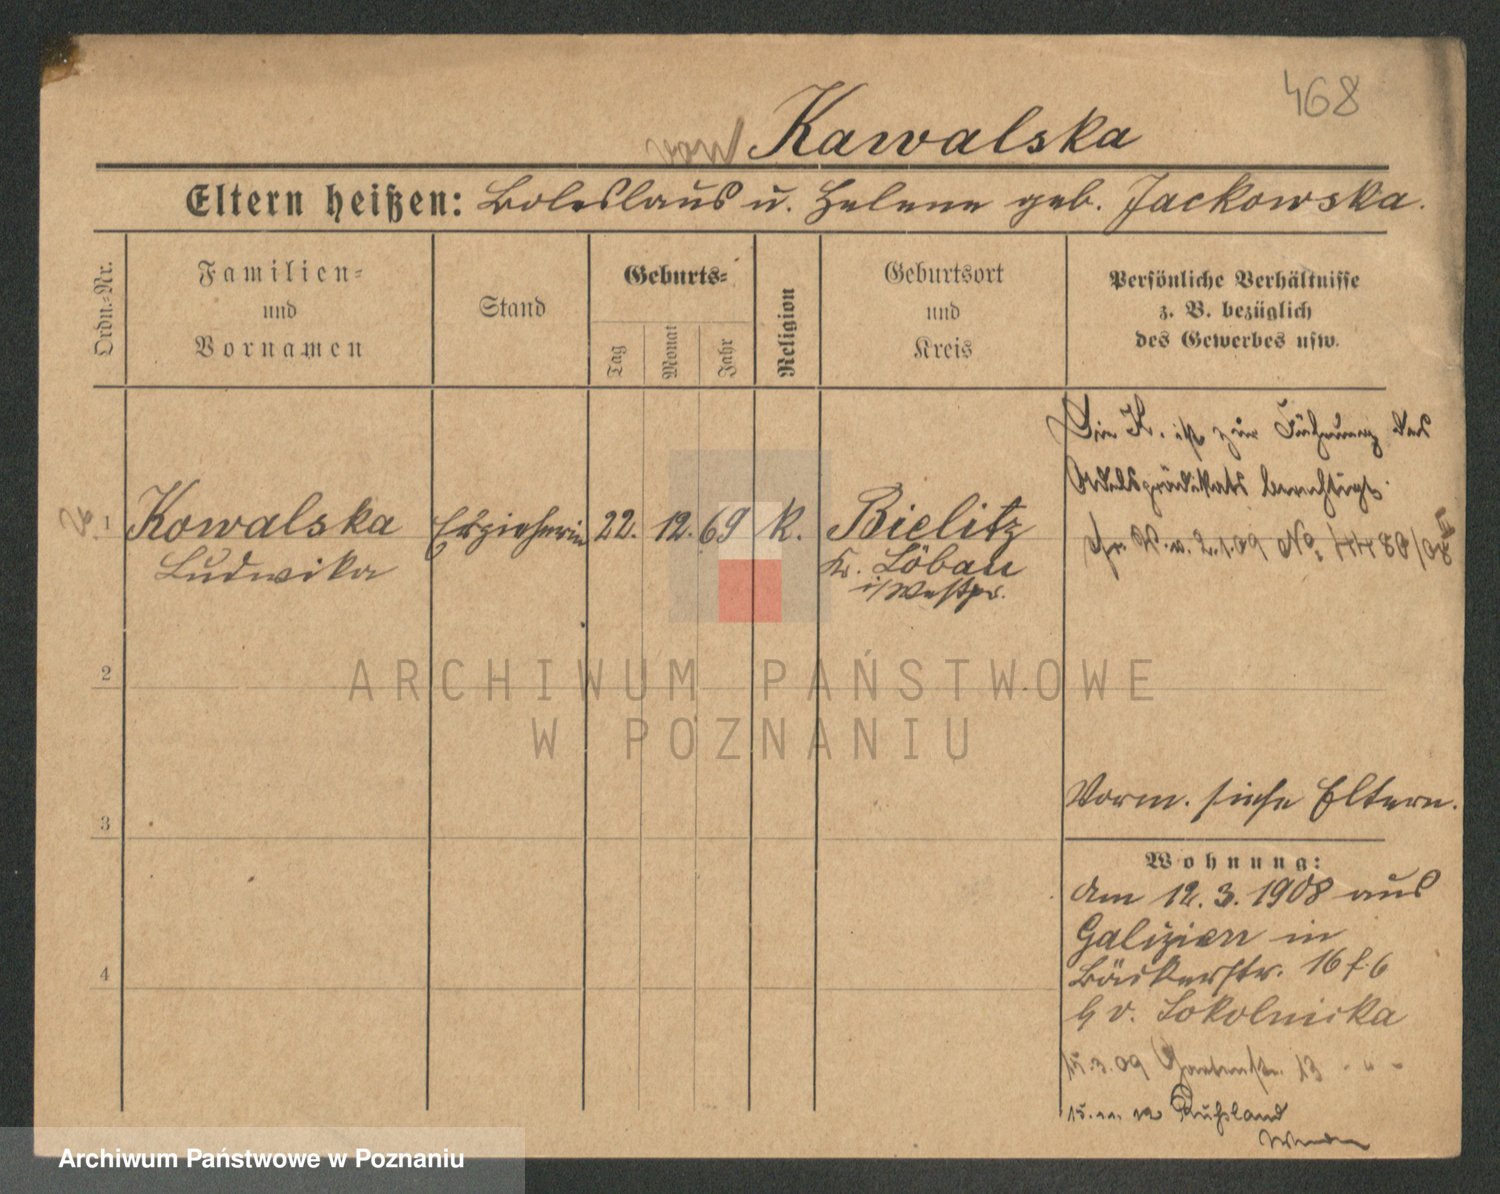 468
von Kawalska
Eltern heißen: Boleslaus u. Helene geb. Jackowska.
Ordn.-Nr.
Familien-
und
Vornamen
Stand
Geburts-
Tag
Monat
Jahr
Religion
Geburtsort
und
Kreis
Persönliche Verhältnisse
z. B. bezüglich
des Gewerbes usw.
Die K. ist zur Führung des
Adelsprädikats berechtigt.
1 Kowalska Erzieherin 22. 12. 69 K. Bielitz
Ludwika Kr. Löbau
i/Westpr.
2.1.09 No
2
ARCHIWUM PAŃSTWOWE
W POZNANIU
Vorm. siehe Eltern.
3
Wohnung:
Am 12.3.1908 aus
Galizien in
Bäckerstr. 16 f. 6
b v. Sokolnicka
4
15.3.09 Gartenstr. 13 - " -
15. Rußland
Archiwum Państwowe w Poznaniu